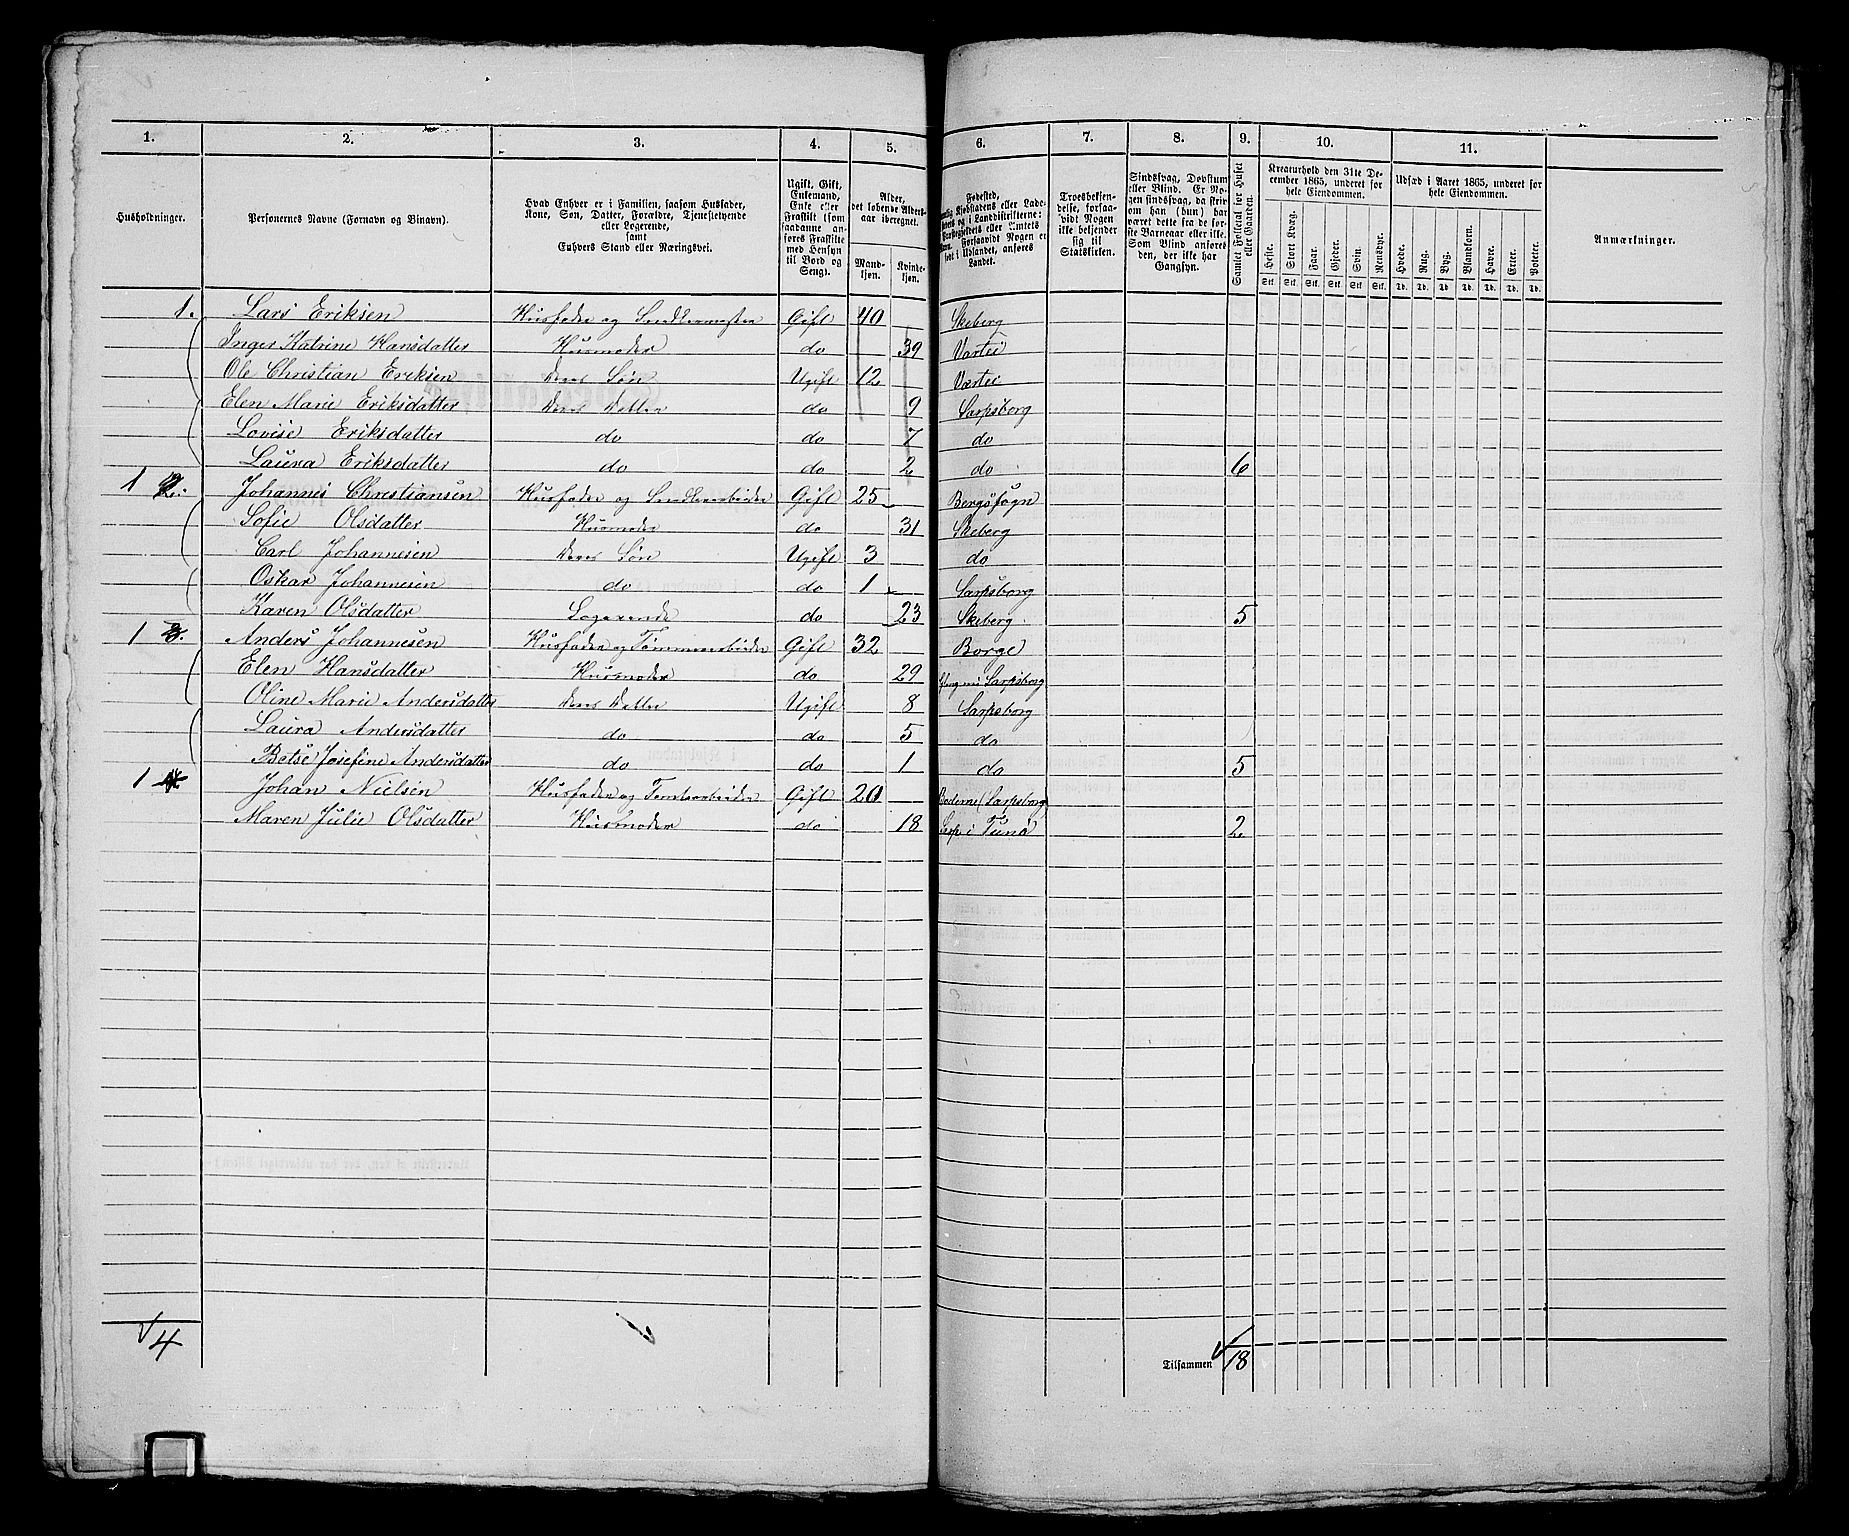 1. 2. 3. 4. 5. 6. 7. 8. 9. 10. 11.
Husholdninger.
Personernes Navne (Fornavn og Binavn).
Hvad Enhver er i Familien, saasom Husfader,
Kone, Søn, Datter, Forældre, Tjenestetyende
eller Logerende,
samt
Enhvers Stand eller Næringsvei.
Ugift, Gift,
Enkemand,
Enke eller
Fraskilt (som
saadanne an-
føres Fraskilte
med Hensyn
til Bord og
Seng).
Alder,
det løbende Alders-
aar iberegnet.
Mand-
kjøn.
Kvinde-
kjøn.
Fødested,
Kjøbstadens eller Lade-
og i Landdistrikterne:
eller Amtets
Forsaavidt Nogen er
født i Udlandet, anføres
Landet.
Troesbekjen-
delse, forsaa-
vidt Nogen
ikke bekjender
sig til
Statskirken.
Sindssvag, Døvstum
eller Blind. Er No-
gen sindssvag, da skri-
ves om han (hun) har
været dette fra de før-
ste Barneaar eller ikke.
Som Blind anføres
den, der ikke har
Gangsyn.
Samlet Folketal for Huset
eller Gaarden.
Kreaturhold den 31te De-
cember 1865, underet for
hele Eiendommen.
Heste. Stort Kvæg. Faar. Gjeder. Svin. Rensdyr.
Stk. Stk. Stk. Stk. Stk. Stk.
Udsæd i Aaret 1865, underet for
hele Eiendommen.
Hvede. Rug. Byg. Blandkorn. Havre. Erter. Poteter.
Td. Td. Td. Td. Td. Td. Td.
Anmærkninger.
1. Lars Eriksen Husfader og Snedkermester Gift 40 Skeberg
Inger Katrine Hansdatter Husmoder do 39 Vartei
Ole Christian Eriksen deres Søn Ugift 12 Værtei
Elen Marie Eriksdatter deres Datter do 9 Sarpsborg
Lovise Eriksdatter do do 7 do
Laura Eriksdatter do do 2 do 6
1 2. Johannes Christiansen Husfader og Snedkerarbeider Gift 25 Bergsogn
Sofie Olsdatter Husmoder do 31 Skeberg
Carl Johannesen deres Søn Ugift 3 do
Oskar Johannesen do do 1 Sarpsborg
Karen Olsdatter Logerende do 23 Skeberg 5
1 3. Anders Johannesen Husfader og Tømmerarbeider Gift 32 Borge
Elen Hansdatter Husmoder do 29 Sarpsborg
Oline Marie Andersdatter deres Datter Ugift 8 Sarpsborg
Laura Andersdatter do do 5 do
Betsé Josefine Andersdatter do do 1 do 5
1 4 Johan Nielsen Husfader og Tomtearbeider Gift 20 Sarpsborg
Maren Julie Olsdatter Husmoder do 18 Sarp i Tune 2
4
Tilsammen 18